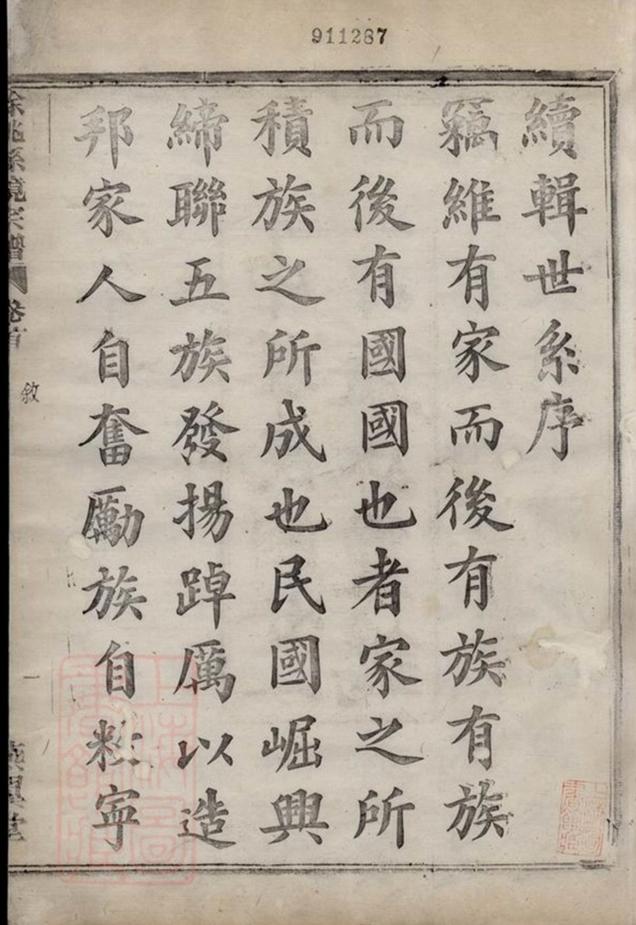 911287
續輯世系序
竊維有家而後有族有族
而後有國國也者家之所
積族之所成也民國崛興
締聯五族發揚踔厲以造
邦家人自奮勵族自粉寧
宗譜
敘
一